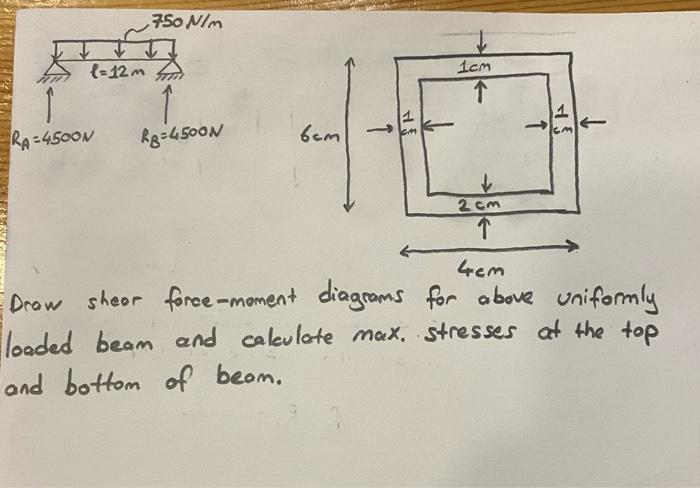 750 N/m
l=12m
RA=4500N
RB=4500N
1cm
1
cm
1
cm
6cm
2 cm
4cm
Draw shear force-moment diagrams for above uniformly
loaded beam and calculate max. stresses at the top
and bottom of beam.